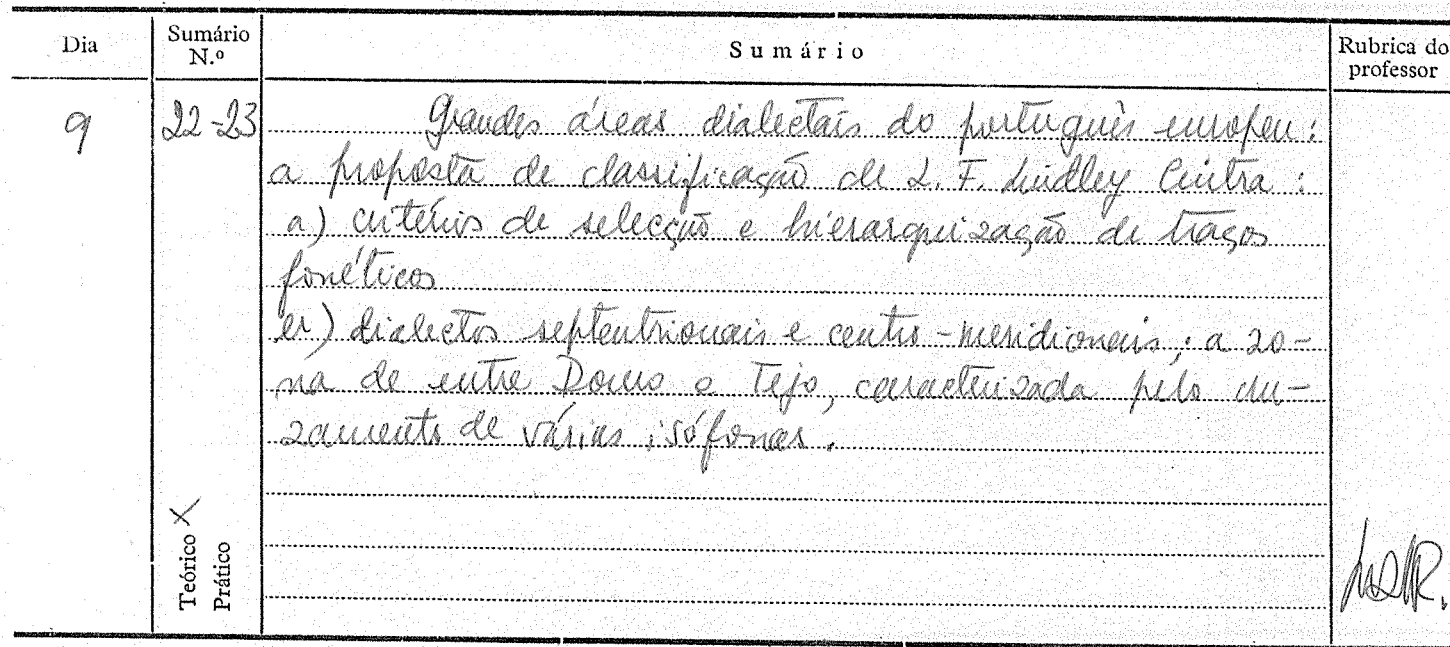 Dia Sumário N.º Sumário Rubrica do professor
9 22-23 Grandes áreas dialectais do português europeu:
a proposta de classificação de L. F. Lindley Cintra:
a) critérios de selecção e hierarquização de traços
fonéticos
b) dialectos septentrionais e centro-meridionais; a zo-
na de entre Douro e Tejo, caracterizada pelo cru-
zamento de várias isófonas.
Teórico X
Prático